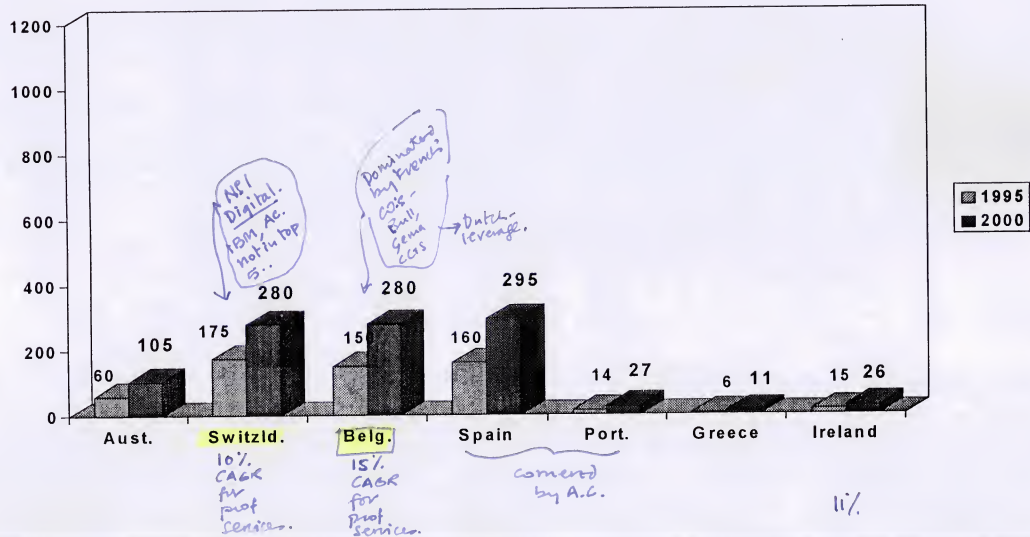 1200
1000
800
600
400
200
0
NSI
Digital.
IBM, AC.
not in top
5..
Dominated
by French
CO's -
Bull,
Sema
CGS
→ Dutch-
leverage.
1995
2000
60
105
175
280
150
280
160
295
14
27
6
11
15
26
Aust.
Switzld.
Belg.
Spain
Port.
Greece
Ireland
10%
CAGR
for
prof
services.
15%
CAGR
for
prof
services.
cornered
by A.C.
11%